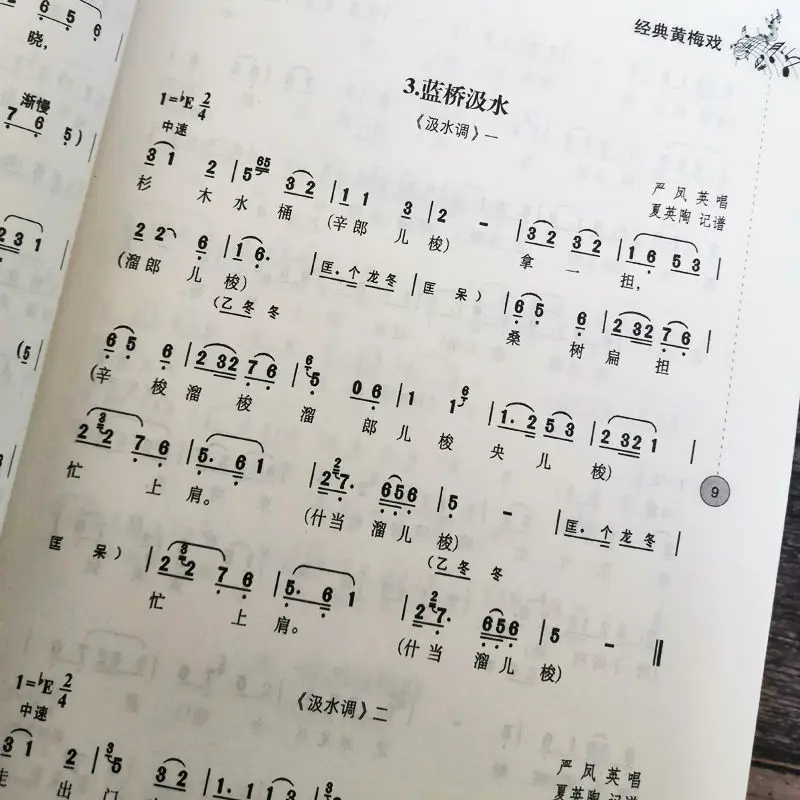 6 5 6
晓，
渐慢
7 6 5 )
2 3 1
(5
经典黄梅戏
3.蓝桥汲水
1=♭E 2/4
中速
《汲水调》一
严凤英唱
夏英陶 记谱
3 1 2 | 5 65 3 2 | 1 1 3 | 2 - | 3 2 3 2 | 1 6 5 3 |
杉 木 水 桶 (辛郎 儿 梭) 拿 一 担，
2 2 6 | 1 6. | 匡. 个 龙 冬 | 匡 呆 ) 6 5 6 | 2 32 7 6 |
(溜郎 儿 梭) 桑 树 扁 担
(乙 冬 冬
6 5 6 | 2 32 7 6 | 6 5 0 6 | 1 1 6 | 1. 2 5 3 | 2 32 1 |
(辛 梭 溜 梭 溜 郎 儿 梭 央 儿 梭)
2 3 2 7 6 | 5. 6 1 | 2 2 7. 6 5 6 | 5 - | 匡. 个 龙 冬 |
忙 上 肩。 (什当 溜儿 梭)
(乙 冬 冬
9
匡 呆 ) | 2 3 2 7 6 | 5. 6 1 | 2 2 7. 6 5 6 | 5 - ‖
忙 上 肩。 (什当 溜儿 梭)
1=♭E 2/4
中速
《汲水调》二
严凤英唱
夏英陶 记谱
3 1 2 | 3 5 3 2 | 1. 1 1 3
走 出 门